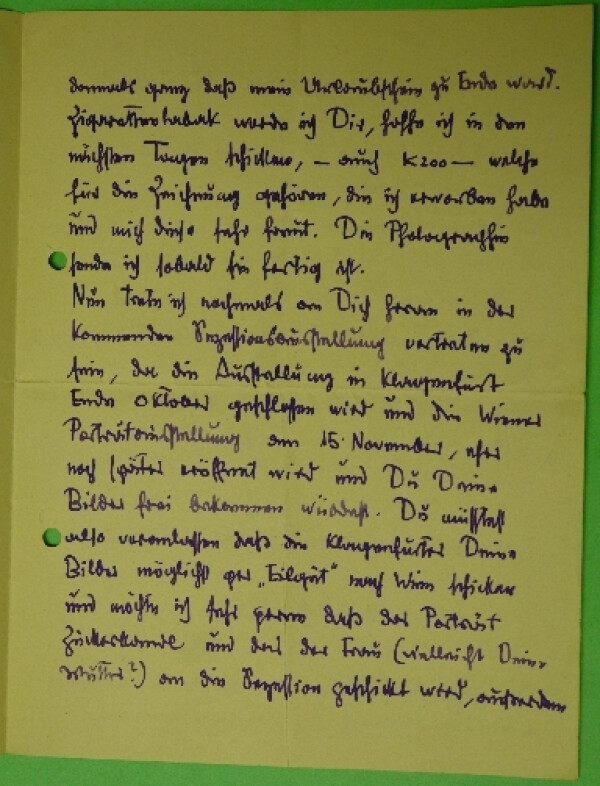 damals ganz daß mein Urlaubschein zu Ende ward.
Zigarettentabak werde ich Dir, hoffe ich in den
nächsten Tagen schicken, – auch K200 – welche
für die Zeichnung gehören, die ich erworben habe
und mich diese sehr freut. Die Photographie
sende ich sobald sie fertig ist.
Nun trete ich nochmals an Dich heran in der
kommenden Sezessionsausstellung vertreten zu
sein, da die Ausstellung in Klagenfurt
Ende Oktober geschlossen wird und die Wiener
Porträtausstellung am 15. November, eher
noch später eröffnet wird und Du Deine
Bilder frei bekommen würdest. Du müsstest
also veranlassen daß die Klagenfurter Deine
Bilder möglichst per „Eilgut" nach Wien schicken
und möchte ich sehr gerne daß das Porträt
Zuckerkandl und das der Frau (vielleicht Deine
Mutter?) an die Sezession geschickt wird, außerdem